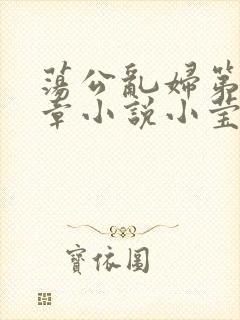 蕩公亂婦第
章小說小莹
寶依圖